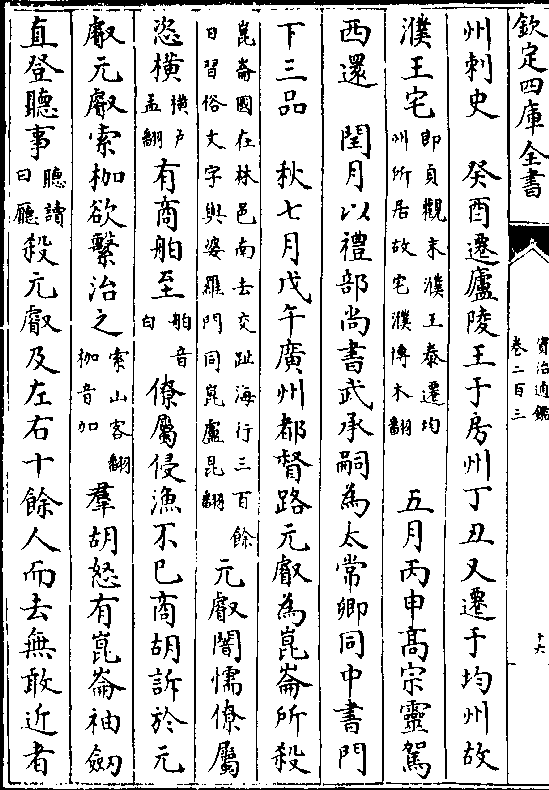 欽定四庫全書
資治通鑑
卷二百三
十六
州刺史　癸酉遷廬陵王于房州丁丑又遷于均州故
濮王宅即貞觀末濮王泰遷均州所居故宅濮博木翻　五月丙申髙宗靈駕
西還　閏月以禮部尚書武承嗣為太常卿同中書門
下三品　秋七月戊午廣州都督路元叡為崑崙所殺
崑崙國在林邑南去交趾海行三百餘日習俗文字與婆羅門同崑盧昆翻　元叡闇懦僚屬
恣横横户孟翻有商舶至舶音白僚屬侵漁不已商胡訴於元
叡元叡索枷欲繫治之索山客翻枷音加羣胡怒有崑崙袖劒
直登聽事聽讀曰廳殺元叡及左右十餘人而去無敢近者